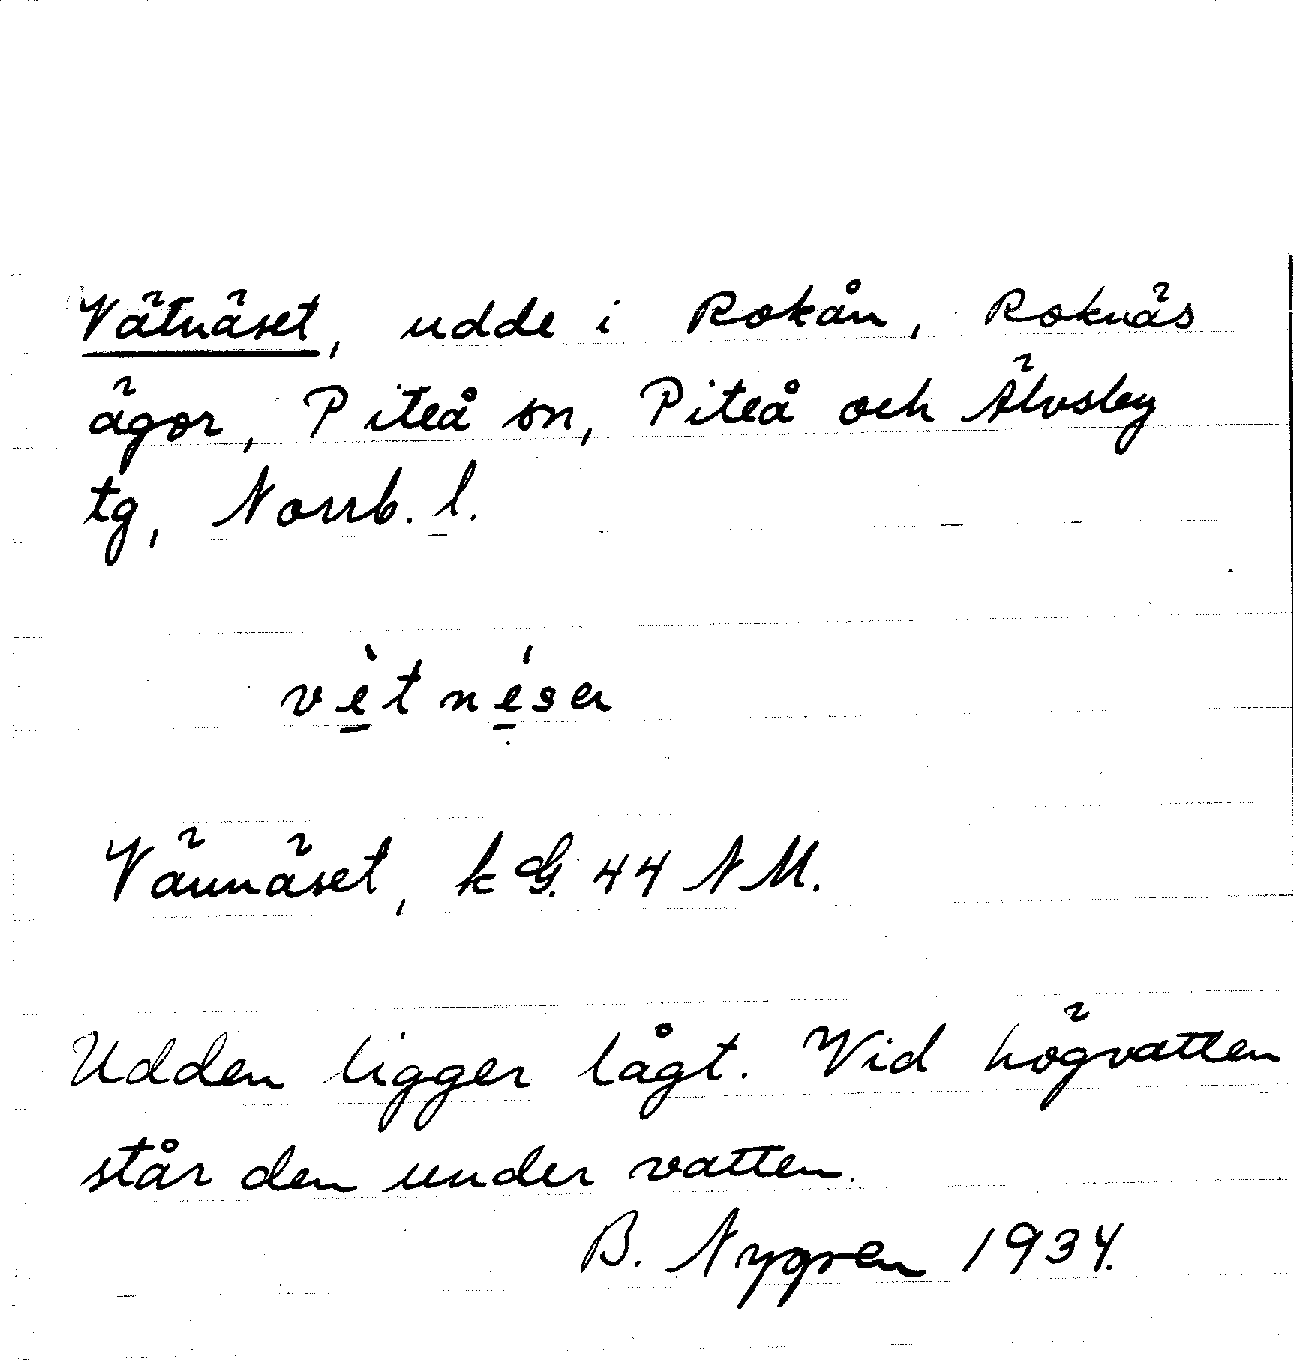 Vätnäset, udde i Rokån, Roknäs
ägor, Piteå sn, Piteå och Älvsby
tg, Norrb. l.
vètnésen
Vännäset, k G. 44 N M.
Udden ligger lågt. Vid högvatten
står den under vatten.
B. Nygren 1934.